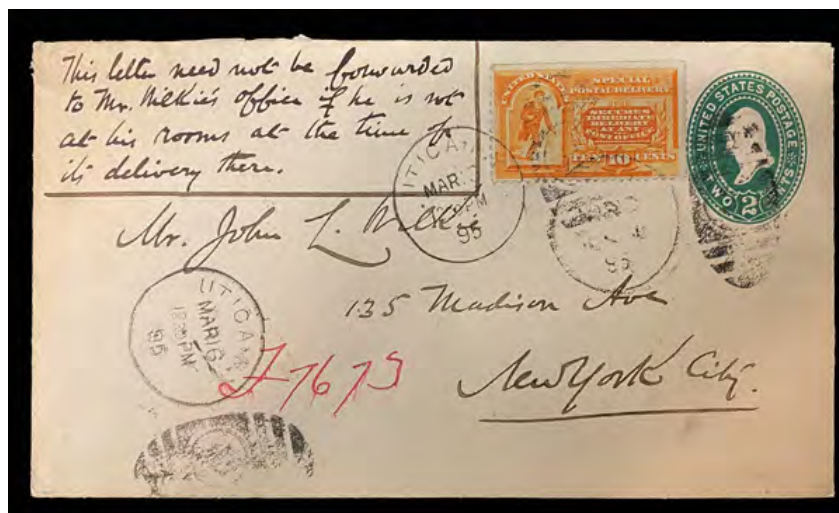 This letter need not be forwarded
to Mr. Wilkie's office if he is not
at his rooms at the time of
its delivery there.
UNITED STATES
SPECIAL
POSTAL DELIVERY
SECURES
IMMEDIATE
DELIVERY
AT ANY
POST OFFICE
TEN 10 CENTS
UNITED STATES POSTAGE
TWO 2 CENTS
UTICA
MAR.
PM
95
Mr. John L. Wilkie
135 Madison Ave
New York City.
UTICA
MAR 16
12 30 PM
95
7673